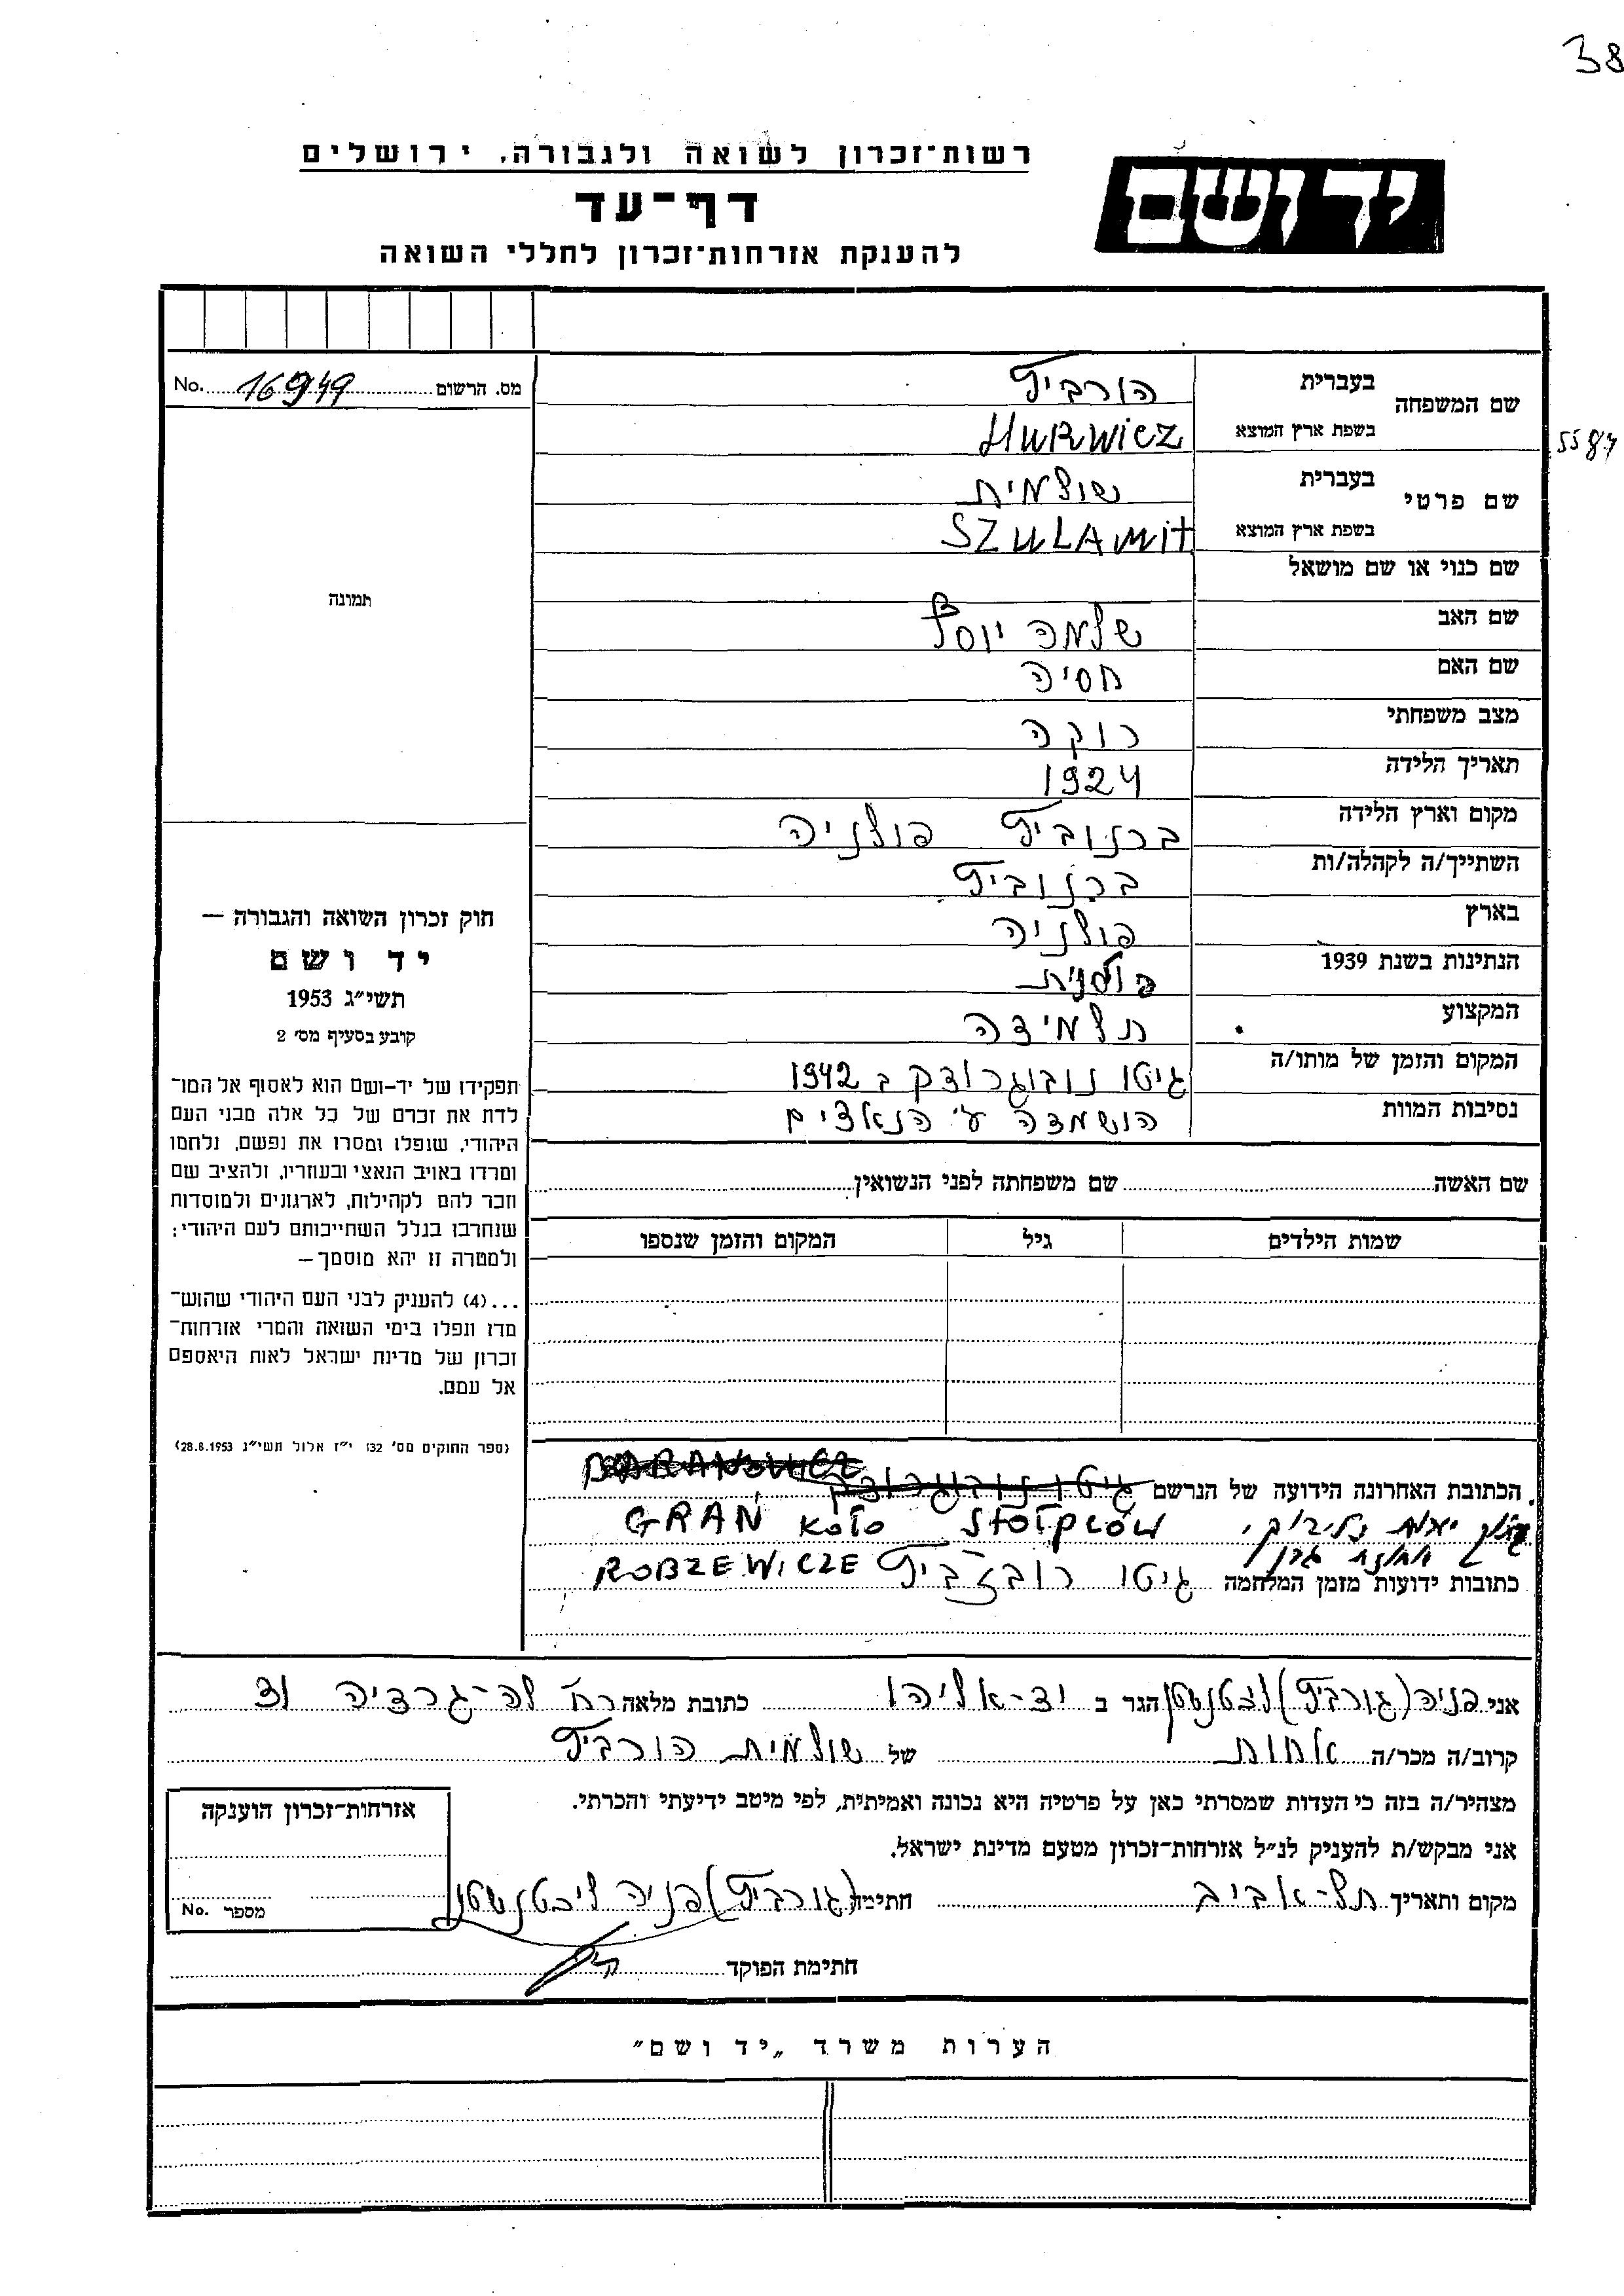 38
רשות־זכרון לשואה ולגבורה, ירושלים
דף־עד
להענקת אזרחות־זכרון לחללי השואה
יד ושם
מס. הרשום 16949 No.
שם המשפחה בעברית הורביץ
בשפת ארץ המוצא HURWICZ
5584
שם פרטי בעברית שולמית
בשפת ארץ המוצא SZULAMIT
שם כנוי או שם מושאל
שם האב שלמה יוסף
שם האם חסיה
מצב משפחתי רוקה
תאריך הלידה 1924
מקום וארץ הלידה ברנוביץ פולניה
השתייך/ה לקהלה/ות ברנוביץ
בארץ פולניה
הנתינות בשנת 1939 פולנית
המקצוע תלמידה
המקום והזמן של מותו/ה גיטו נובוגרודק ב 1942
נסיבות המוות הושמדה ע׳ הנאצים
תמונה
חוק זכרון השואה והגבורה —
יד ושם
תשי״ג 1953
קובע בסעיף מס׳ 2
תפקידו של יד-ושם הוא לאסוף אל המו־
לדת את זכרם של כל אלה מבני העם
היהודי, שנפלו ומסרו את נפשם, נלחמו
ומרדו באויב הנאצי ובעוזריו, ולהציב שם
וזכר להם לקהילות, לארגונים ולמוסדות
שנחרבו בגלל השתייכותם לעם היהודי:
ולמטרה זו יהא מוסמך —
...(4) להעניק לבני העם היהודי שהוש־
מדו ונפלו בימי השואה והמרי אזרחות־
זכרון של מדינת ישראל לאות היאספם
אל עמם.
(ספר החוקים מס׳ 132 י״ז אלול תשי״ג 28.8.1953)
שם האשה שם משפחתה לפני הנשואין
שמות הילדים גיל המקום והזמן שנספו
הכתובת האחרונה הידועה של הנרשם גיטו נובוגרודק BARANOWICZ
GRAN KOŁO STOŁPCÓW
כתובות ידועות מזמן המלחמה גיטו רובז׳ביץ ROBZEWICZE
אני פניה (גורביץ) ליכטנשטן הגר ב יד-אליהו כתובת מלאה רח׳ לה-גרדיה 31
קרוב/ה מכר/ה אחות של שולמית הורביץ
מצהיר/ה בזה כי העדות שמסרתי כאן על פרטיה היא נכונה ואמיתית, לפי מיטב ידיעתי והכרתי.
אני מבקש/ת להעניק לנ״ל אזרחות־זכרון מטעם מדינת ישראל.
מקום ותאריך תל-אביב חתימה (גורביץ) פניה ליכטנשטן
חתימת הפוקד
אזרחות־זכרון הוענקה
מספר No.
הערות משרד „יד ושם״